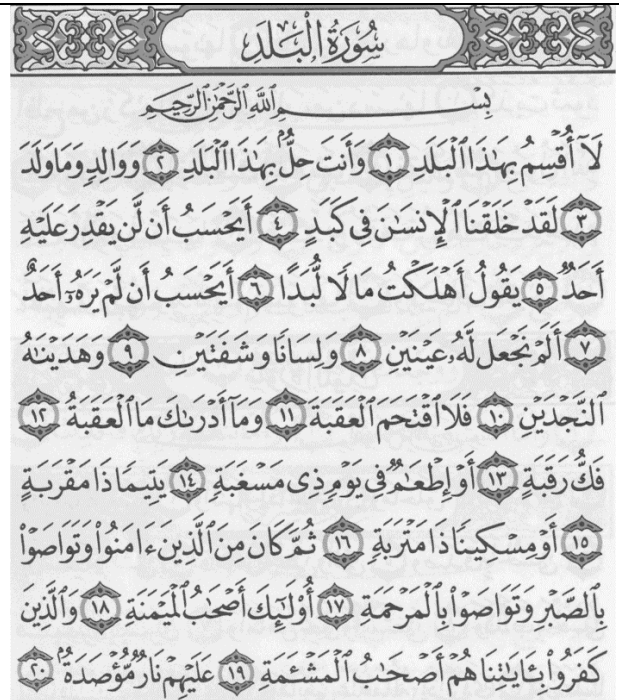 سُورَةُ الْبَلَدِ
بِسْمِ اللَّهِ الرَّحْمَٰنِ الرَّحِيمِ
لَآ أُقْسِمُ بِهَٰذَا الْبَلَدِ ۝١ وَأَنتَ حِلٌّۢ بِهَٰذَا الْبَلَدِ ۝٢ وَوَالِدٍ وَمَا وَلَدَ
۝٣ لَقَدْ خَلَقْنَا الْإِنسَٰنَ فِى كَبَدٍ ۝٤ أَيَحْسَبُ أَن لَّن يَقْدِرَ عَلَيْهِ
أَحَدٌ ۝٥ يَقُولُ أَهْلَكْتُ مَالًا لُّبَدًا ۝٦ أَيَحْسَبُ أَن لَّمْ يَرَهُۥٓ أَحَدٌ
۝٧ أَلَمْ نَجْعَل لَّهُۥ عَيْنَيْنِ ۝٨ وَلِسَانًا وَشَفَتَيْنِ ۝٩ وَهَدَيْنَٰهُ
النَّجْدَيْنِ ۝١٠ فَلَا اقْتَحَمَ الْعَقَبَةَ ۝١١ وَمَآ أَدْرَىٰكَ مَا الْعَقَبَةُ ۝١٢
فَكُّ رَقَبَةٍ ۝١٣ أَوْ إِطْعَٰمٌ فِى يَوْمٍ ذِى مَسْغَبَةٍ ۝١٤ يَتِيمًا ذَا مَقْرَبَةٍ
۝١٥ أَوْ مِسْكِينًا ذَا مَتْرَبَةٍ ۝١٦ ثُمَّ كَانَ مِنَ الَّذِينَ ءَامَنُوا۟ وَتَوَاصَوْا۟
بِالصَّبْرِ وَتَوَاصَوْا۟ بِالْمَرْحَمَةِ ۝١٧ أُو۟لَٰٓئِكَ أَصْحَٰبُ الْمَيْمَنَةِ ۝١٨ وَالَّذِينَ
كَفَرُوا۟ بِـَٔايَٰتِنَا هُمْ أَصْحَٰبُ الْمَشْـَٔمَةِ ۝١٩ عَلَيْهِمْ نَارٌ مُّؤْصَدَةٌۢ ۝٢٠